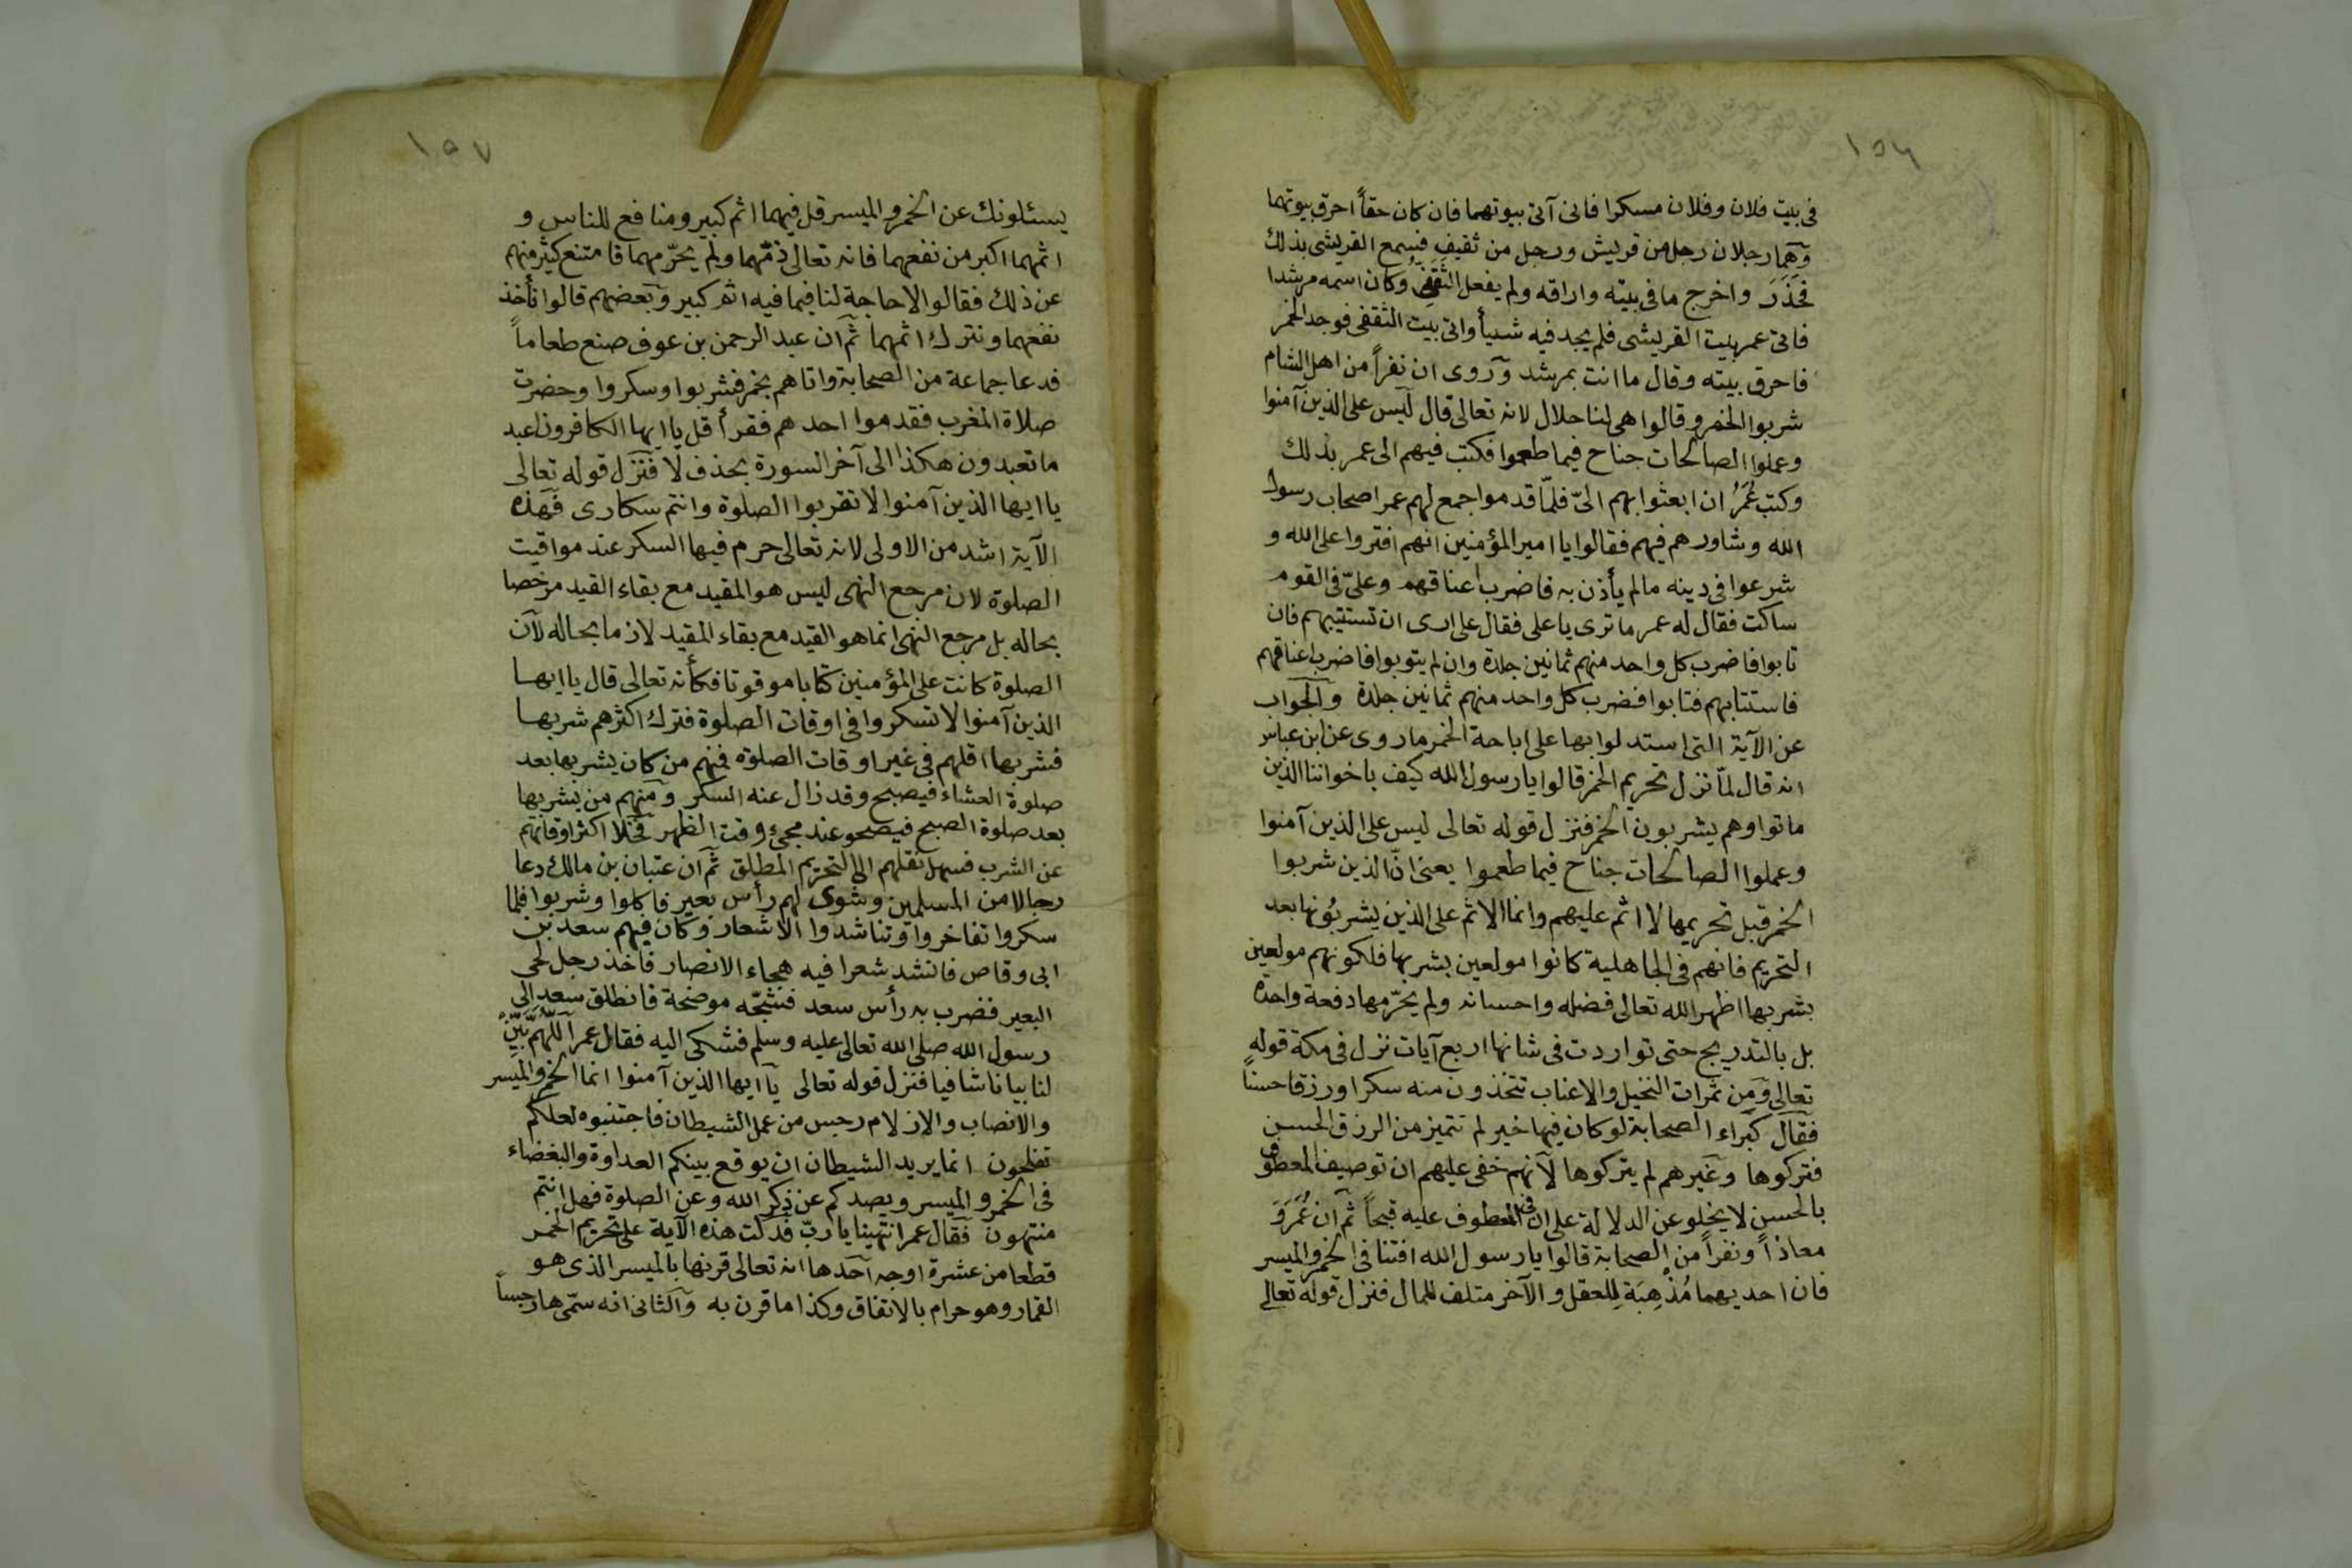 ١٥٦
فى بيت فلان وفلان مسكرا فانى آتى بيوتهما فان كان حقاً احرق بيوتهما
وهما رجلان رجل من قريش ورجل من ثقيف فسمع القريشى بذلك
فحذر واخرج ما فى بيته واراقه ولم يفعل الثقفى وكان اسمه مرشدا
فاتى عمر بيت القريشى فلم يجد فيه شيأ واتى بيت الثقفى فوجد الخمر
فاحرق بيته وقال ما انت بمرشد وروى ان نفراً من اهل الشام
شربوا الخمر وقالوا هى لنا حلال لانه تعالى قال ليس على الذين آمنوا
وعملوا الصالحات جناح فيما طعموا فكتب فيهم الى عمر بذلك
وكتب عُمَرُ ان ابعثوا بهم الىّ فلمّا قدموا جمع لهم عمر اصحاب رسول
الله وشاورهم فيهم فقالوا يا امير المؤمنين انهم افتروا على الله و
شرعوا فى دينه ما لم يأذن به فاضرب اعناقهم وعلىّ فى القوم
ساكت فقال له عمر ما ترى يا على فقال على ارى ان تستتيبهم فان
تابوا فاضرب كل واحد منهم ثمانين جلدة وان لم يتوبوا فاضرب اعناقهم
فاستتابهم فتابوا فضرب كل واحد منهم ثمانين جلدة والجواب
عن الآية التى استدلوا بها على اباحة الخمر ما روى عن ابن عباس
انه قال لمّا نزل تحريم الخمر قالوا يا رسول الله كيف باخواننا الذين
ماتوا وهم يشربون الخمر فنزل قوله تعالى ليس على الذين آمنوا
وعملوا الصالحات جناح فيما طعموا يعنى انّ الذين شربوا
الخمر قبل تحريمها لا اثم عليهم وانما الاثم على الذين يشربُونها بعد
التحريم فانهم فى الجاهلية كانوا مولعين بشربها فلكونهم مولعين
بشربها اظهر الله تعالى فضله واحسانه ولم يحرّمها دفعة واحدة
بل بالتدريج حتى تواردت فى شانها اربع آيات نزل فى مكة قوله
تعالى ومن ثمرات النخيل والاعناب تتخذون منه سكرا ورزقا حسناً
فقال كبراء الصحابة لو كان فيها خير لم تتميز من الرزق الحسن
فتركوها وغيرهم لم يتركوها لانهم خفى عليهم ان توصيف المعطوف
بالحسن لا يخلو عن الدلالة على ان فى المعطوف عليه قبحاً ثم ان عُمَرَ وَ
معاذاً ونفراً من الصحابة قالوا يا رسول الله افتنا فى الخمر والميسر
فان احديهما مُذْهِبَة لِلعقل والآخر متلف للمال فنزل قوله تعالى
١٥٧
يسئلونك عن الخمر والميسر قل فيهما اثم كبير ومنافع للناس و
اثمهما اكبر من نفعهما فانه تعالى ذمّهما ولم يحرّمهما فامتنع كثير منهم
عن ذلك فقالوا لا حاجة لنا فيما فيه اثم كبير وبعضهم قالوا نأخذ
نفعهما ونترك اثمهما ثم ان عبد الرحمن بن عوف صنع طعاماً
فدعا جماعة من الصحابة واتاهم بخمر فشربوا وسكروا وحضرت
صلاة المغرب فقدموا احدهم فقرأ قل يا ايها الكافرون اعبد
ما تعبدون هكذا الى آخر السورة بحذف لا فنزل قوله تعالى
يا ايها الذين آمنوا لا تقربوا الصلوة وانتم سكارى فهذه
الآية اشد من الاولى لانه تعالى حرم فيها السكر عند مواقيت
الصلوة لان مرجع النهى ليس هو المقيد مع بقاء القيد مرخصا
بحاله بل مرجع النهى انما هو القيد مع بقاء المقيد لازما بحاله لان
الصلوة كانت على المؤمنين كتابا موقوتا فكأنه تعالى قال يا ايها
الذين آمنوا لا تسكروا فى اوقات الصلوة فترك اكثرهم شربها
فشربها اقلهم فى غير اوقات الصلوة فمنهم من كان يشربها بعد
صلوة العشاء فيصبح وقد زال عنه السكر ومنهم من يشربها
بعد صلوة الصبح فيصحو عند مجئ وقت الظهر فخلا اكثر اوقاتهم
عن الشرب فسهل نقلهم الى التحريم المطلق ثم ان عتبان بن مالك دعا
رجالا من المسلمين وشوى لهم رأس بعير فاكلوا وشربوا فلما
سكروا تفاخروا وتناشدوا الاشعار وكان فيهم سعد بن
ابى وقاص فانشد شعرا فيه هجاء الانصار فاخذ رجل لحى
البعير فضرب به رأس سعد فشجّه موضحة فانطلق سعد الى
رسول الله صلى الله تعالى عليه وسلم فشكى اليه فقال عمر اللّهمّ بيّن
لنا بيانا شافيا فنزل قوله تعالى يا ايها الذين آمنوا انما الخمر والميسر
والانصاب والازلام رجس من عمل الشيطان فاجتنبوه لعلكم
تفلحون انما يريد الشيطان ان يوقع بينكم العداوة والبغضاء
فى الخمر والميسر ويصدكم عن ذكر الله وعن الصلوة فهل انتم
منتهون فقال عمر انتهينا يا ربّ فدلت هذه الآية على تحريم الخمر
قطعا من عشرة اوجه احدها انه تعالى قرنها بالميسر الذى هو
القمار وهو حرام بالاتفاق وكذا ما قرن به والثانى انه سمّى ها رجساً